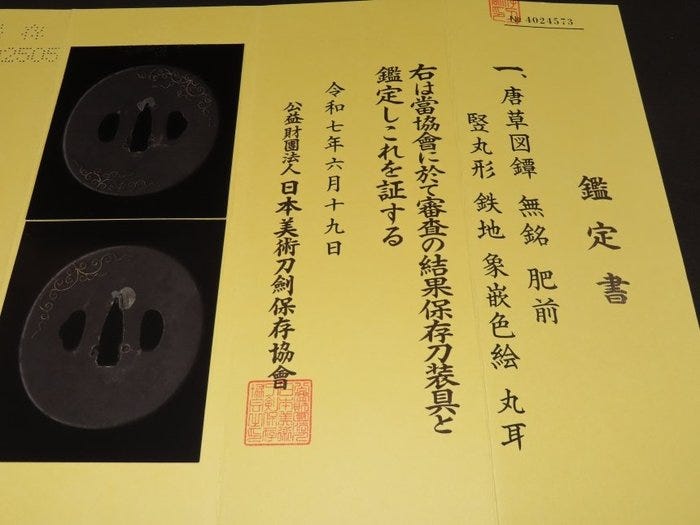 № 4024573
鑑定書
一、唐草図鐔 無銘 肥前
竪丸形 鉄地 象嵌色絵 丸耳
右は當協會に於て審査の結果保存刀装具と
鑑定しこれを証する
令和七年六月十九日
公益財團法人 日本美術刀劍保存協會
存
2505